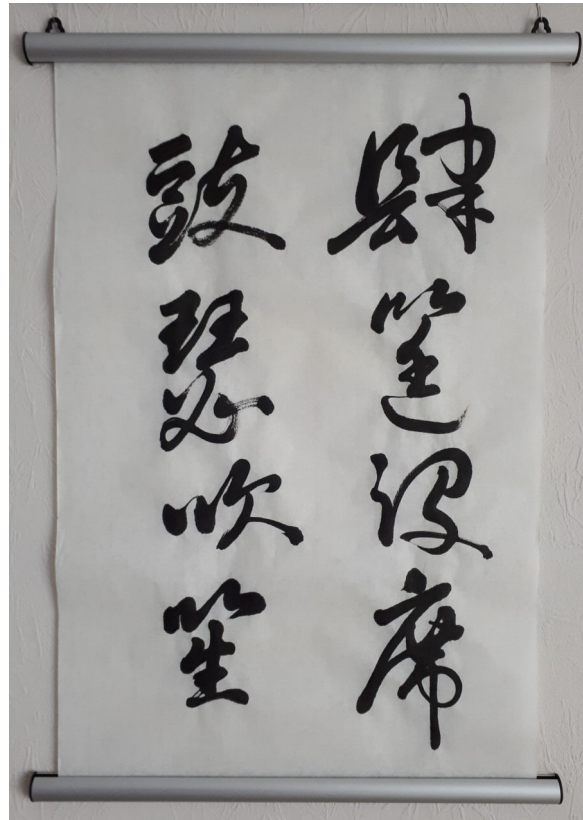 肆筵設席
鼓瑟吹笙